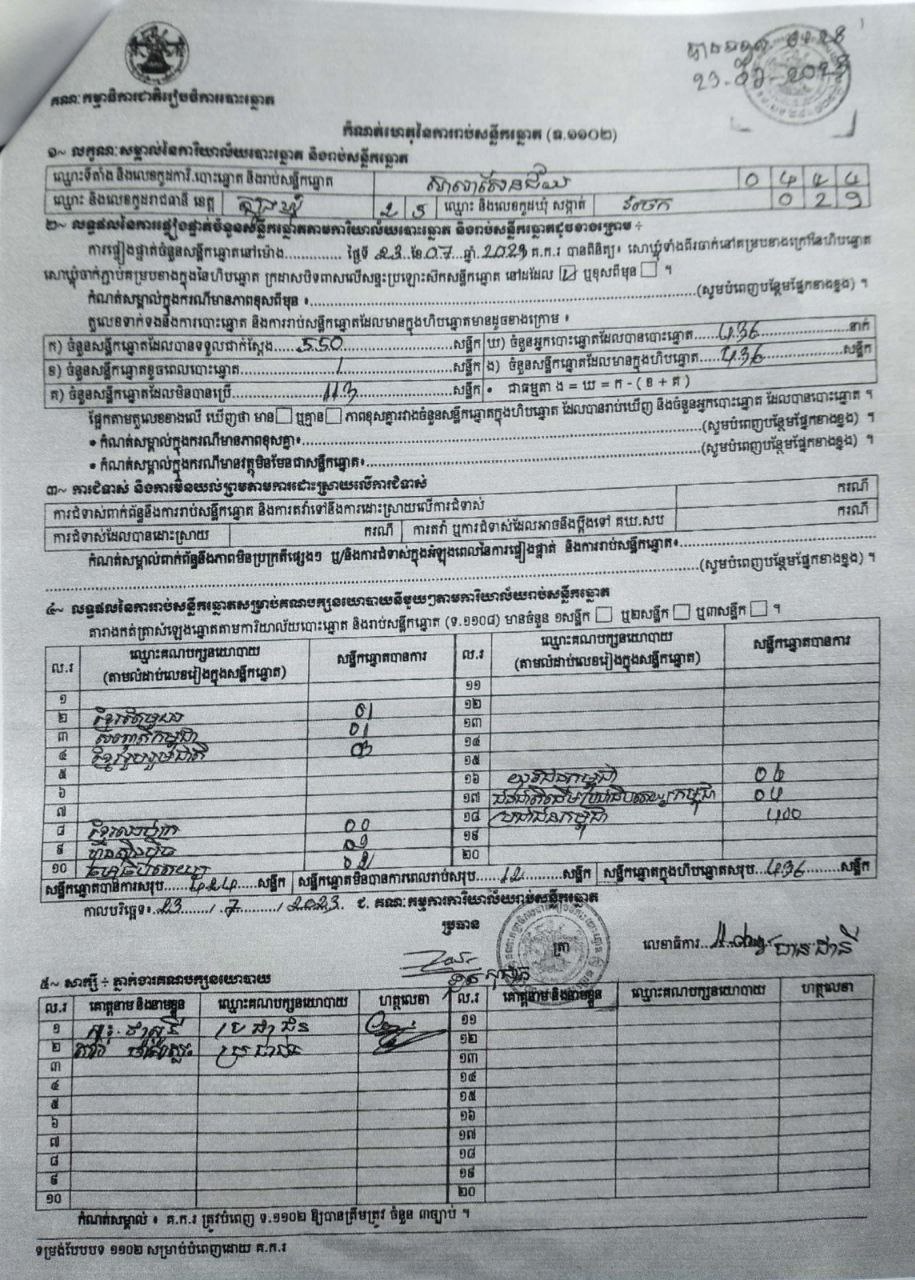 គណៈកម្មាធិការជាតិរៀបចំការបោះឆ្នោត
កំណត់ហេតុនៃការរាប់សន្លឹកឆ្នោត (ទ.១១០២)
១~ លក្ខណៈសម្គាល់នៃការិយាល័យបោះឆ្នោត និងរាប់សន្លឹកឆ្នោត
ឈ្មោះទីតាំង និងលេខកូដការិ.បោះឆ្នោត និងរាប់សន្លឹកឆ្នោត សាលាសែនជ័យ
ឈ្មោះ និងលេខកូដរាជធានី ខេត្ត ត្បូងឃ្មុំ 2 5 ឈ្មោះ និងលេខកូដឃុំ សង្កាត់ 0 2 9
២~ លទ្ធផលនៃការផ្ទៀងផ្ទាត់ចំនួនសន្លឹកឆ្នោតតាមការិយាល័យបោះឆ្នោត និងរាប់សន្លឹកឆ្នោតដូចខាងក្រោម ÷
ការផ្ទៀងផ្ទាត់ចំនួនសន្លឹកឆ្នោតនៅម៉ោង............... ថ្ងៃទី 23 ខែ 07 ឆ្នាំ 2023 គ.ក.រ បានពិនិត្យ។ សោឃ្មុំទាំងពីរចាក់នៅគម្របខាងក្រៅនៃហិបឆ្នោត
សោឃ្មុំចាក់ភ្ជាប់គម្របខាងក្នុងនៃហិបឆ្នោត ក្រដាសបិទពាសលើសន្ទះប្រឡោះស៊កសន្លឹកឆ្នោត នៅដដែល ☑ ឬខុសពីមុន ☐ ។
កំណត់សម្គាល់ក្នុងករណីមានភាពខុសពីមុន ៖..............................(សូមបំពេញបន្ថែមផ្នែកខាងខ្នង) ។
តួលេខទាក់ទងនឹងការបោះឆ្នោត និងការរាប់សន្លឹកឆ្នោតដែលមានក្នុងហិបឆ្នោតមានដូចខាងក្រោម ៖
ក) ចំនួនសន្លឹកឆ្នោតដែលបានទទួលជាក់ស្តែង......550......សន្លឹក ឃ) ចំនួនអ្នកបោះឆ្នោតដែលបានបោះឆ្នោត......436......នាក់
ខ) ចំនួនសន្លឹកឆ្នោតខូចពេលបោះឆ្នោត......1......សន្លឹក ង) ចំនួនសន្លឹកឆ្នោតដែលមានក្នុងហិបឆ្នោត......436......សន្លឹក
គ) ចំនួនសន្លឹកឆ្នោតដែលមិនបានប្រើ......113......សន្លឹក • ជាធម្មតា ង = ឃ = ក - ( ខ + គ )
ផ្អែកតាមតួលេខខាងលើ ឃើញថា មាន ☐ ឬគ្មាន ☐ ភាពខុសគ្នារវាងចំនួនសន្លឹកឆ្នោតក្នុងហិបឆ្នោត ដែលបានរាប់ឃើញ និងចំនួនអ្នកបោះឆ្នោត ដែលបានបោះឆ្នោត ។
• កំណត់សម្គាល់ក្នុងករណីមានភាពខុសគ្នា៖..............................(សូមបំពេញបន្ថែមផ្នែកខាងខ្នង) ។
• កំណត់សម្គាល់ក្នុងករណីមានវត្ថុមិនមែនជាសន្លឹកឆ្នោត៖..............................(សូមបំពេញបន្ថែមផ្នែកខាងខ្នង) ។
៣~ ការជំទាស់ និងការមិនយល់ព្រមតាមការដោះស្រាយលើការជំទាស់
ការជំទាស់ពាក់ព័ន្ធនឹងការរាប់សន្លឹកឆ្នោត និងការតវ៉ាទៅនឹងការដោះស្រាយលើការជំទាស់ ករណី
ការជំទាស់ដែលបានដោះស្រាយ ករណី ការតវ៉ា ឬការជំទាស់ដែលអាចនឹងប្តឹងទៅ គឃ.សប ករណី
កំណត់សម្គាល់ពាក់ព័ន្ធនឹងភាពមិនប្រក្រតីផ្សេងៗ ឬ/និងការជំទាស់ក្នុងអំឡុងពេលនៃការផ្ទៀងផ្ទាត់ និងការរាប់សន្លឹកឆ្នោត៖..............................
..............................(សូមបំពេញបន្ថែមផ្នែកខាងខ្នង) ។
៤~ លទ្ធផលនៃការរាប់សន្លឹកឆ្នោតសម្រាប់គណបក្សនយោបាយនីមួយៗតាមការិយាល័យរាប់សន្លឹកឆ្នោត
តារាងកត់ត្រាសំឡេងឆ្នោតតាមការិយាល័យបោះឆ្នោត និងរាប់សន្លឹកឆ្នោត (ទ.១១០៨) មានចំនួន ១សន្លឹក ☐ ឬ២សន្លឹក ☐ ឬ៣សន្លឹក ☐ ។
ល.រ ឈ្មោះគណបក្សនយោបាយ (តាមលំដាប់លេខរៀងក្នុងសន្លឹកឆ្នោត) សន្លឹកឆ្នោតបានការ ល.រ ឈ្មោះគណបក្សនយោបាយ (តាមលំដាប់លេខរៀងក្នុងសន្លឹកឆ្នោត) សន្លឹកឆ្នោតបានការ
១ ១១
២ 01 ១២
៣ 01 ១៣
៤ 03 ១៤
៥ ១៥
៦ ១៦ យុវជនកម្ពុជា
៧ ១៧ ជនជាតិដើមប្រជាធិបតេយ្យកម្ពុជា
៨ 00 ១៨ ប្រជាជនកម្ពុជា 400
៩ ១៩
១០ ២០
សន្លឹកឆ្នោតបានការសរុប......424......សន្លឹក សន្លឹកឆ្នោតមិនបានការពេលរាប់សរុប......12......សន្លឹក សន្លឹកឆ្នោតក្នុងហិបឆ្នោតសរុប......436......សន្លឹក
កាលបរិច្ឆេទ៖ 23 / 7 / 2023 ជ. គណៈកម្មការការិយាល័យរាប់សន្លឹកឆ្នោត
ប្រធាន
ត្រា
លេខាធិការ
៥~ សាក្សី ÷ ភ្នាក់ងារគណបក្សនយោបាយ
ល.រ គោត្តនាម និងនាមខ្លួន ឈ្មោះគណបក្សនយោបាយ ហត្ថលេខា ល.រ គោត្តនាម និងនាមខ្លួន ឈ្មោះគណបក្សនយោបាយ ហត្ថលេខា
១ ប្រជាជន ១១
២ ប្រជាជន ១២
៣ ១៣
៤ ១៤
៥ ១៥
៦ ១៦
៧ ១៧
៨ ១៨
៩ ១៩
១០ ២០
កំណត់សម្គាល់ ៖ គ.ក.រ ត្រូវបំពេញ ទ.១១០២ ឱ្យបានត្រឹមត្រូវ ចំនួន ៣ច្បាប់ ។
ទម្រង់បែបបទ ១១០២ សម្រាប់បំពេញដោយ គ.ក.រ